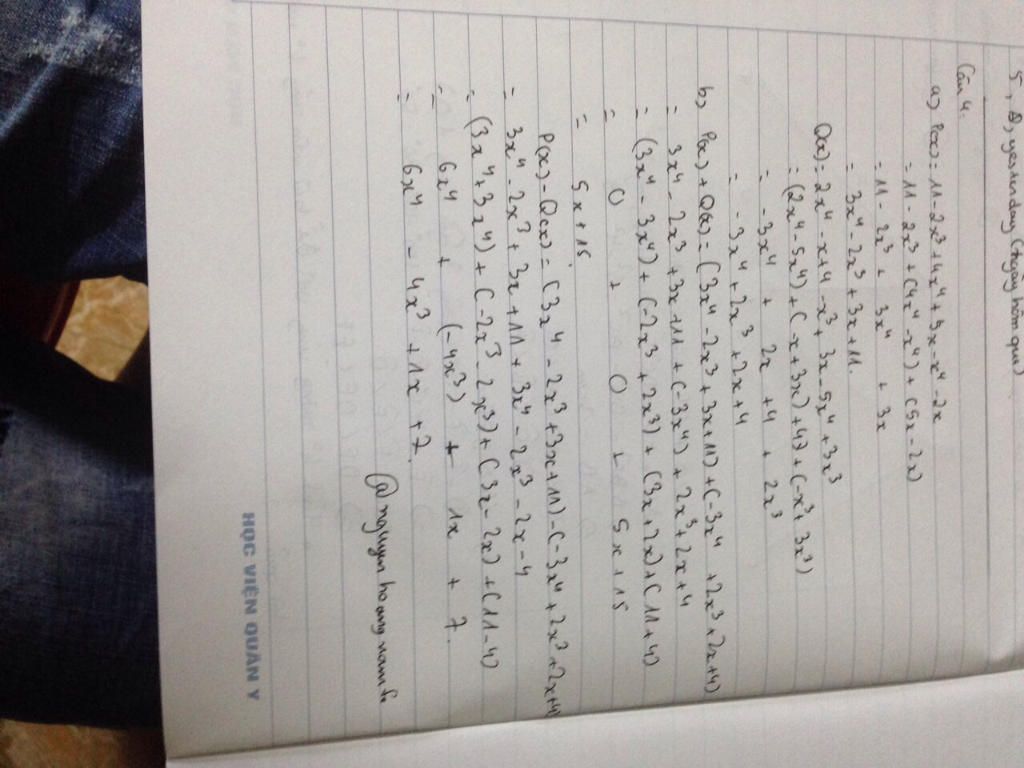 5, A, yesterday (ngày hôm qua)
Câu 4.
a, P(x) = 11 - 2x³ + 4x⁴ + 5x - x⁴ - 2x
= 11 - 2x³ + (4x⁴ - x⁴) + (5x - 2x)
= 11 - 2x³ + 3x⁴ + 3x
= 3x⁴ - 2x³ + 3x + 11.
Q(x) = 2x⁴ - x + 4 - x³ + 3x - 5x⁴ + 3x³
= (2x⁴ - 5x⁴) + (-x + 3x) + 4) + (-x³ + 3x³)
= -3x⁴ + 2x + 4 + 2x³
= -3x⁴ + 2x³ + 2x + 4
b, P(x) + Q(x) = (3x⁴ - 2x³ + 3x + 11) + (-3x⁴ + 2x³ + 2x + 4)
= 3x⁴ - 2x³ + 3x + 11 + (-3x⁴) + 2x³ + 2x + 4
= (3x⁴ - 3x⁴) + (-2x³ + 2x³) + (3x + 2x) + (11 + 4)
= 0 + 0 + 5x + 15
= 5x + 15
P(x) - Q(x) = (3x⁴ - 2x³ + 3x + 11) - (-3x⁴ + 2x³ + 2x + 4)
= 3x⁴ - 2x³ + 3x + 11 + 3x⁴ - 2x³ - 2x - 4
= (3x⁴ + 3x⁴) + (-2x³ - 2x³) + (3x - 2x) + (11 - 4)
= 6x⁴ + (-4x³) + 1x + 7.
= 6x⁴ - 4x³ + 1x + 7.
@nguyen hoang nam
HỌC VIỆN QUÂN Y